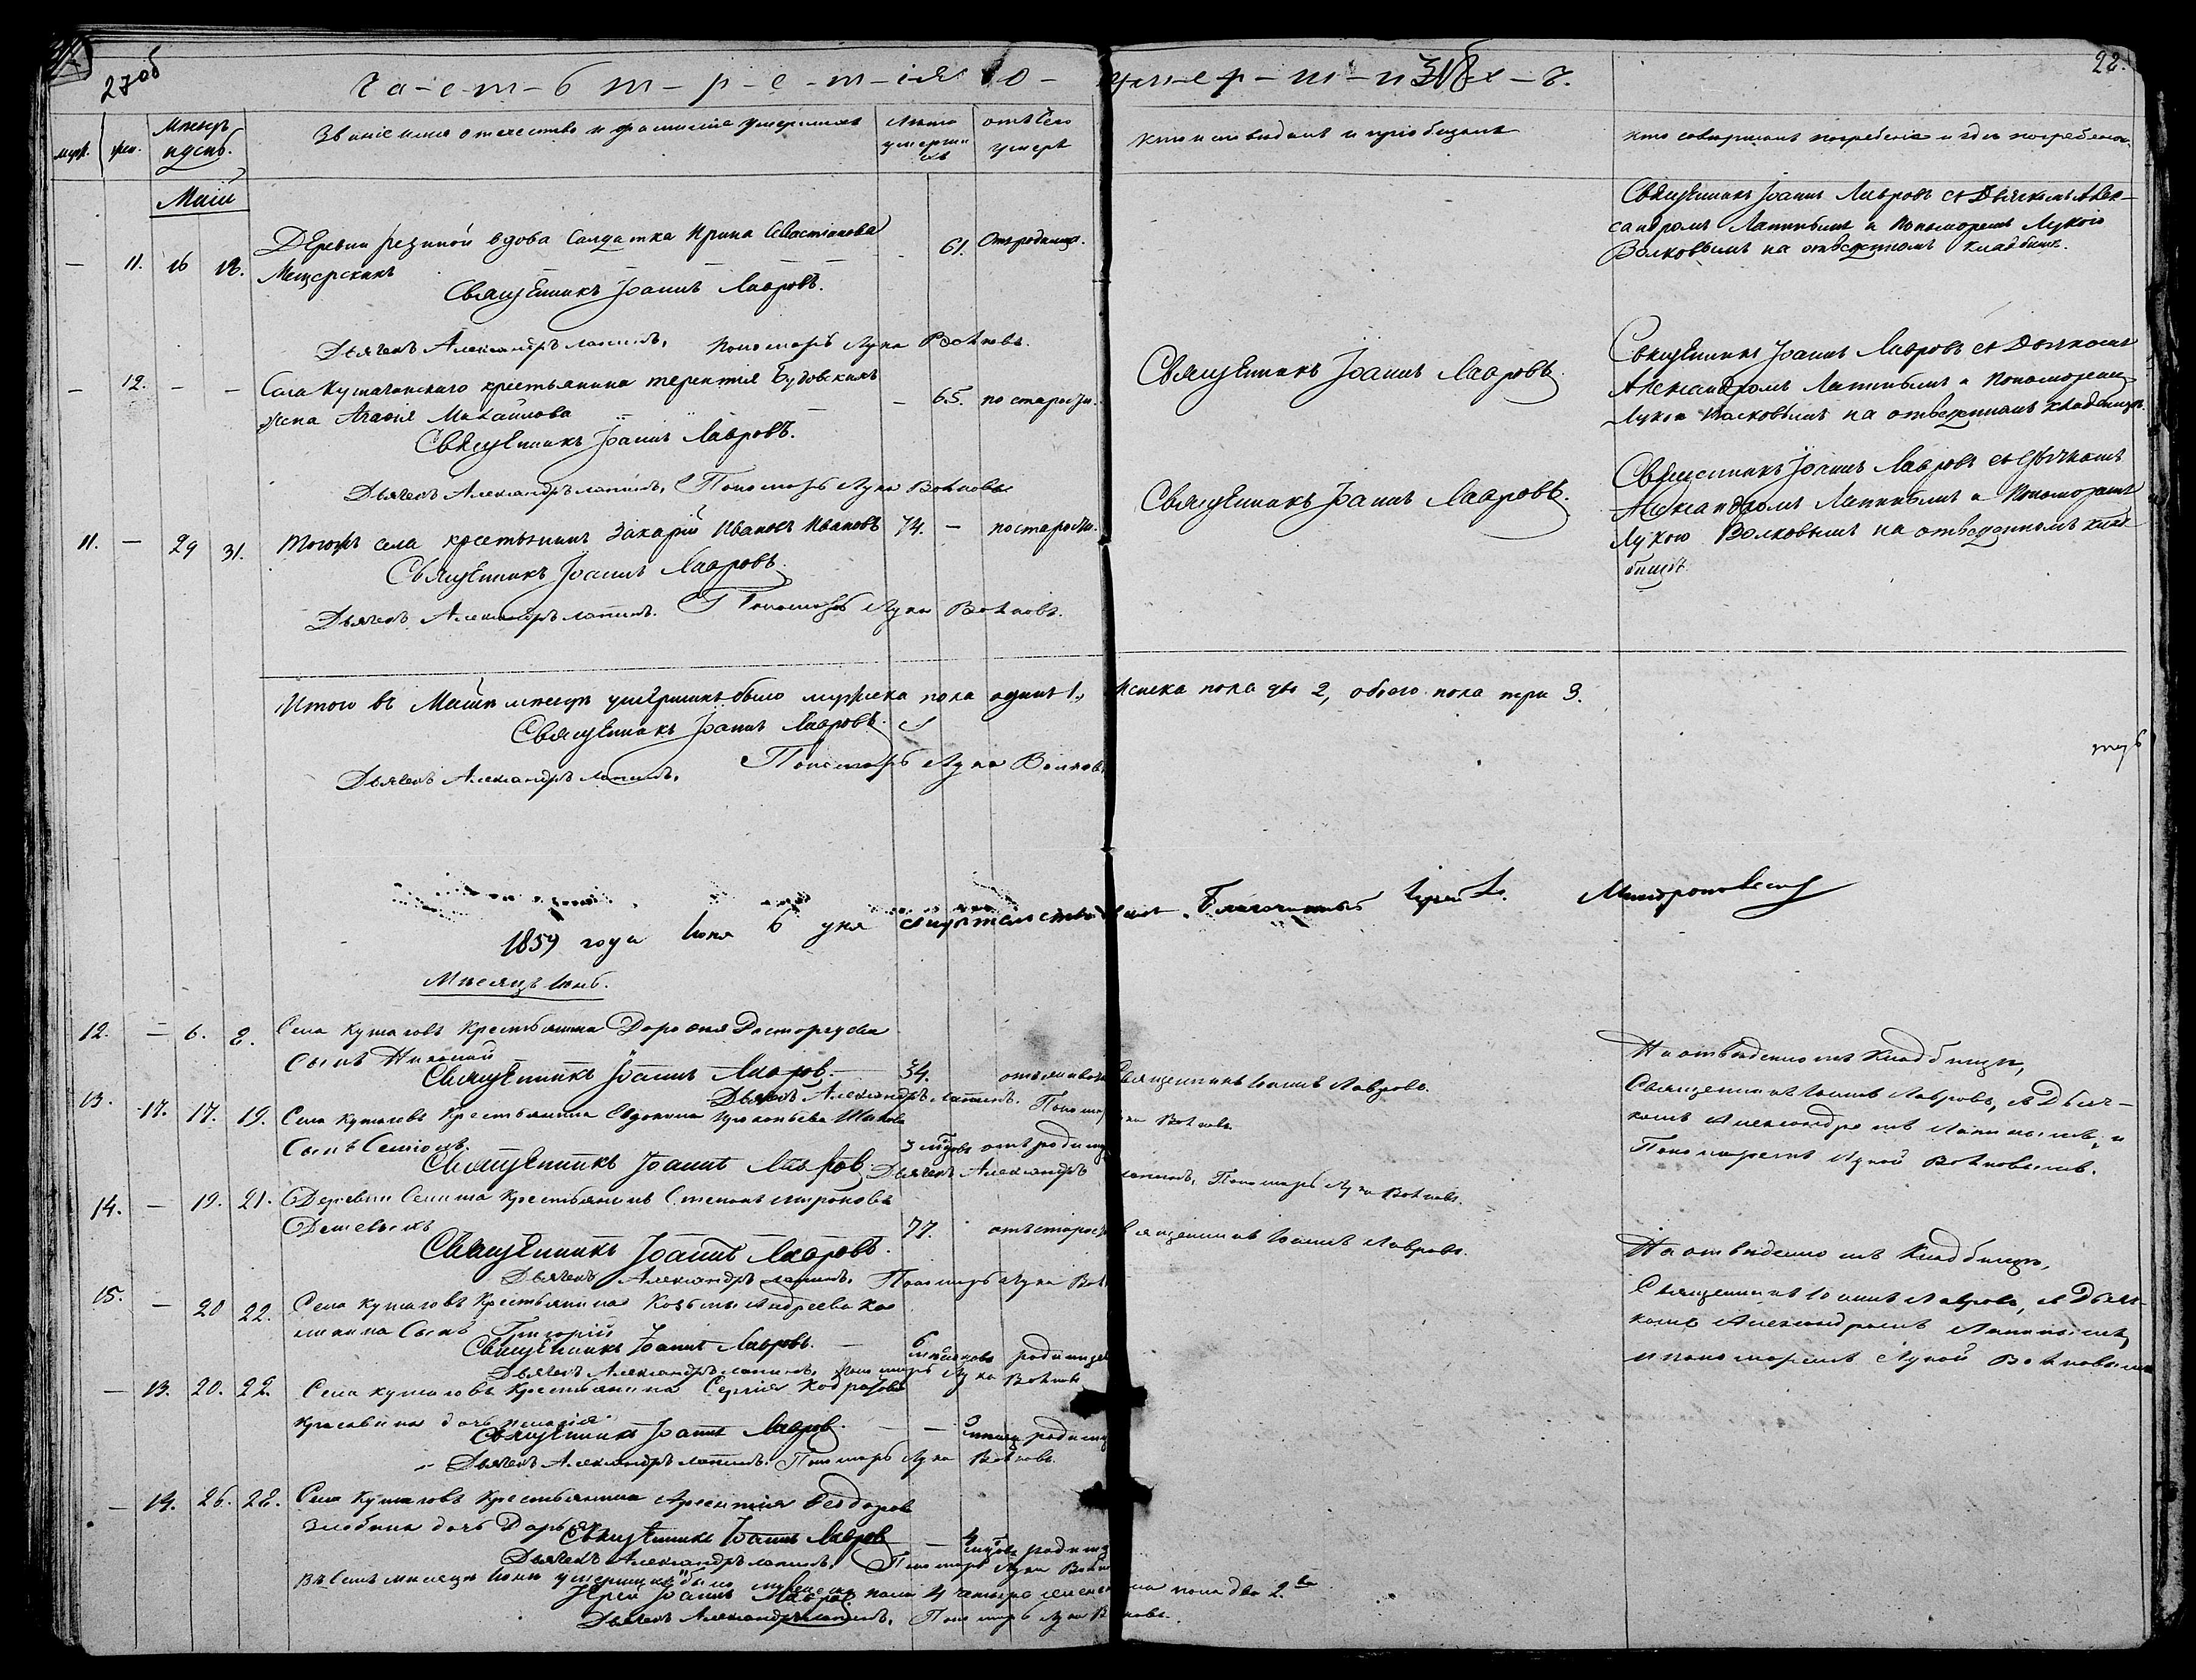 27об
Ча-с-т-ь т-р-е-т-ія о-
умер-ш-и-х-ъ.
318
28.
муж. жен.
Мѣсяцъ и день.
Званіе имя отечество и фамилія умершихъ
Лѣта умершихъ
отъ чего умеръ
кто исповѣдалъ и пріобщалъ
кто совершалъ погребеніе и гдѣ погребены.
Маій
— 11. 16 18.
Деревни Резиной вдова Салдатка Ирина Севастіанова
Мещерскихъ
61. Отъ родимца.
Священникъ Іоаннъ Лавровъ.
Дьячекъ Александръ Лапинъ, Пономарь Лука Волковъ.
Священникъ Іоаннъ Лавровъ съ Дьячкомъ Алек-
сандромъ Лапинымъ и Пономоремъ Лукою
Волковымъ на отведенномъ кладбищѣ.
— 12. — —
Села крестьянина Терентія Будовскихъ
жена Агафія Михайлова
65. по старости.
Священникъ Іоаннъ Лавровъ.
Дьячекъ Александръ Лапинъ, Пономарь Лука Волковъ
Священникъ Іоаннъ Лавровъ.
Священникъ Іоаннъ Лавровъ съ Дьячкомъ
Александромъ Лапинымъ и Пономоремъ
Лукою Волковымъ на отведенномъ кладбищѣ.
11. — 29 31.
Тогожъ села крестьянинъ Захарій Ивановъ Ивановъ
74. — по старости.
Священникъ Іоаннъ Лавровъ.
Дьячекъ Александръ Лапинъ. Пономарь Лука Волковъ.
Священникъ Іоаннъ Лавровъ.
Священникъ Іоаннъ Лавровъ съ Дьячкомъ
Александромъ Лапинымъ и Пономоремъ
Лукою Волковымъ на отведенномъ клад
бищѣ
Итого въ Маіи мѣсяцѣ умершихъ было мужеска пола одинъ 1, женска пола два 2, обоего пола три 3.
Священникъ Іоаннъ Лавровъ.
Пономарь Лука Волковъ
Дьячекъ Александръ Лапинъ.
1859 года Іюня 6 дня свидѣтельствовалъ Благочинный Іерей
Мѣсяцъ Іюнь.
12. — 6. 8.
Села Куташовъ Крестьянина Дорофея Расторгуева
Сынъ Николай
34.
Священникъ Іоаннъ Лавров.
Дьячекъ Александръ Лапинъ. Пономарь Лука Волковъ.
Священникъ Іоаннъ Лавровъ.
На отведенномъ Кладбищѣ,
Священникъ Іоаннъ Лавровъ, съ Дьяч-
комъ Александромъ Лапинымъ, и
Пономаремъ Лукой Волковымъ.
13. 17. 19.
Села Куташовъ Крестьянина
Сынъ Семіонъ
3 отъ родимца
Священникъ Іоаннъ Лавров.
Дьячекъ Александръ Лапинъ, Пономарь Лука Волковъ.
14. — 19. 21.
Деревни Крестьянинъ Степанъ Мироновъ
77. отъ старости
Священникъ Іоаннъ Лавровъ.
Дьячекъ Александръ Лапинъ, Пономарь Лука Вол
Священникъ Іоаннъ Лавровъ.
На отведенномъ Кладбищѣ,
Священникъ Іоаннъ Лавровъ, съ Дьяч-
комъ Александромъ Лапинымъ,
и пономаремъ Лукой Волковымъ
15. — 20 22.
Села Куташовъ Крестьянина Козьмы Андреева Ка
линина Сынъ Григорій
6 родимца
Священникъ Іоаннъ Лавровъ.
Дьячекъ Александръ Лапинъ, Пономарь Лука Волковъ
— 13. 20. 22.
Села Куташовъ Крестьянина Сергія
дочь
родимца
Священникъ Іоаннъ Лавров.
Дьячекъ Александръ Лапинъ. Пономарь Лука Волковъ.
— 14. 26. 28.
Села Куташовъ Крестьянина Арсентія Феодоров
Злобина дочь Дарья
4 родимца
Священникъ Іоаннъ Лавров
Дьячекъ Александръ Лапинъ, Пономарь Лука Волков
Въ семъ мѣсяцѣ Іюнѣ умершихъ было мужеска пола 4 четыре женска пола два 2.
Іерей Іоаннъ Лавров.
Дьячекъ Александръ Лапинъ, Пономарь Лука Волковъ.